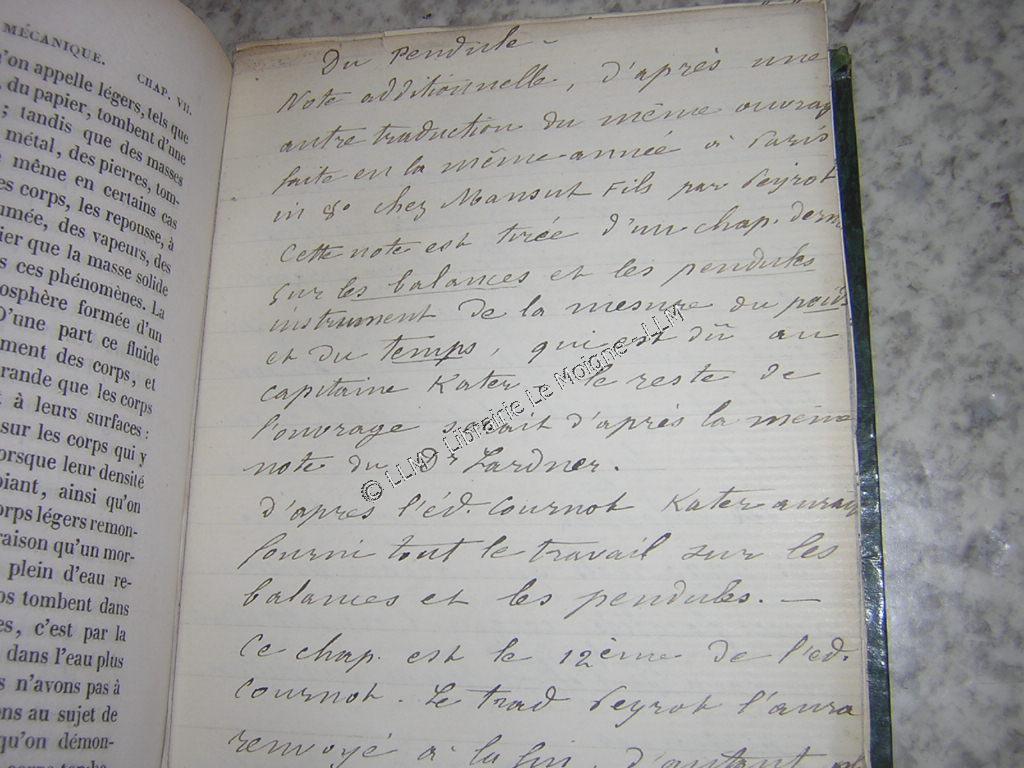 MÉCANIQUE. CHAP. VII.
'on appelle légers, tels que
du papier, tombent d'une
; tandis que des masses
métal, des pierres, tom-
même en certains cas
es corps, les repousse, à
umée, des vapeurs, des
ier que la masse solide
s ces phénomènes. La
osphère formée d'un
D'une part ce fluide
ment des corps, et
rande que les corps
t à leurs surfaces :
sur les corps qui y
orsque leur densité
biant, ainsi qu'on
orps légers remon-
raison qu'un mor-
plein d'eau re-
os tombent dans
es, c'est par la
dans l'eau plus
s n'avons pas à
ons au sujet de
qu'on démon-
Du pendule -
Note additionnelle, d'après une
autre traduction du même ouvrag
faite en la même année à Paris
in 8° chez Mansut Fils par Peyrot
Cette note est tirée d'un chap. dern
sur les balances et les pendules
instrument de la mesure du poids
et du temps, qui est dû au
capitaine Kater le reste de
l'ouvrage d'après la même
note du Dr Lardner.
d'après l'éd. Cournot Kater aurait
fourni tout le travail sur les
balances et les pendules. —
Ce chap. est le 12ème de l'éd.
Cournot. Le trad Peyrot l'aura
renvoyé à la fin, d'autant pl
© LLM - Librairie Le Moigne - LLM